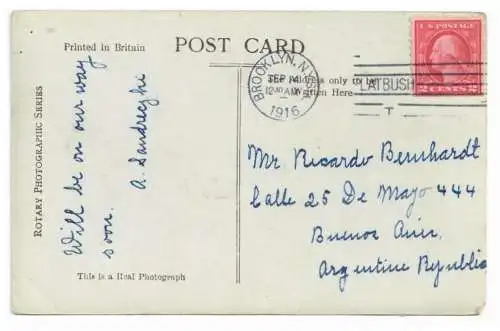 Printed in Britain
POST CARD
U.S. POSTAGE
2 CENTS 2
BROOKLYN, N.Y.
SEP 14
12 AM
1916
FLATBUSH
T
Address only to be
Written Here
ROTARY PHOTOGRAPHIC SERIES
Will be on our way
soon.
A.
Mr Ricardo Bernhardt
Calle 25 De Mayo 444
Buenos Aires,
Argentine Republic
This is a Real Photograph